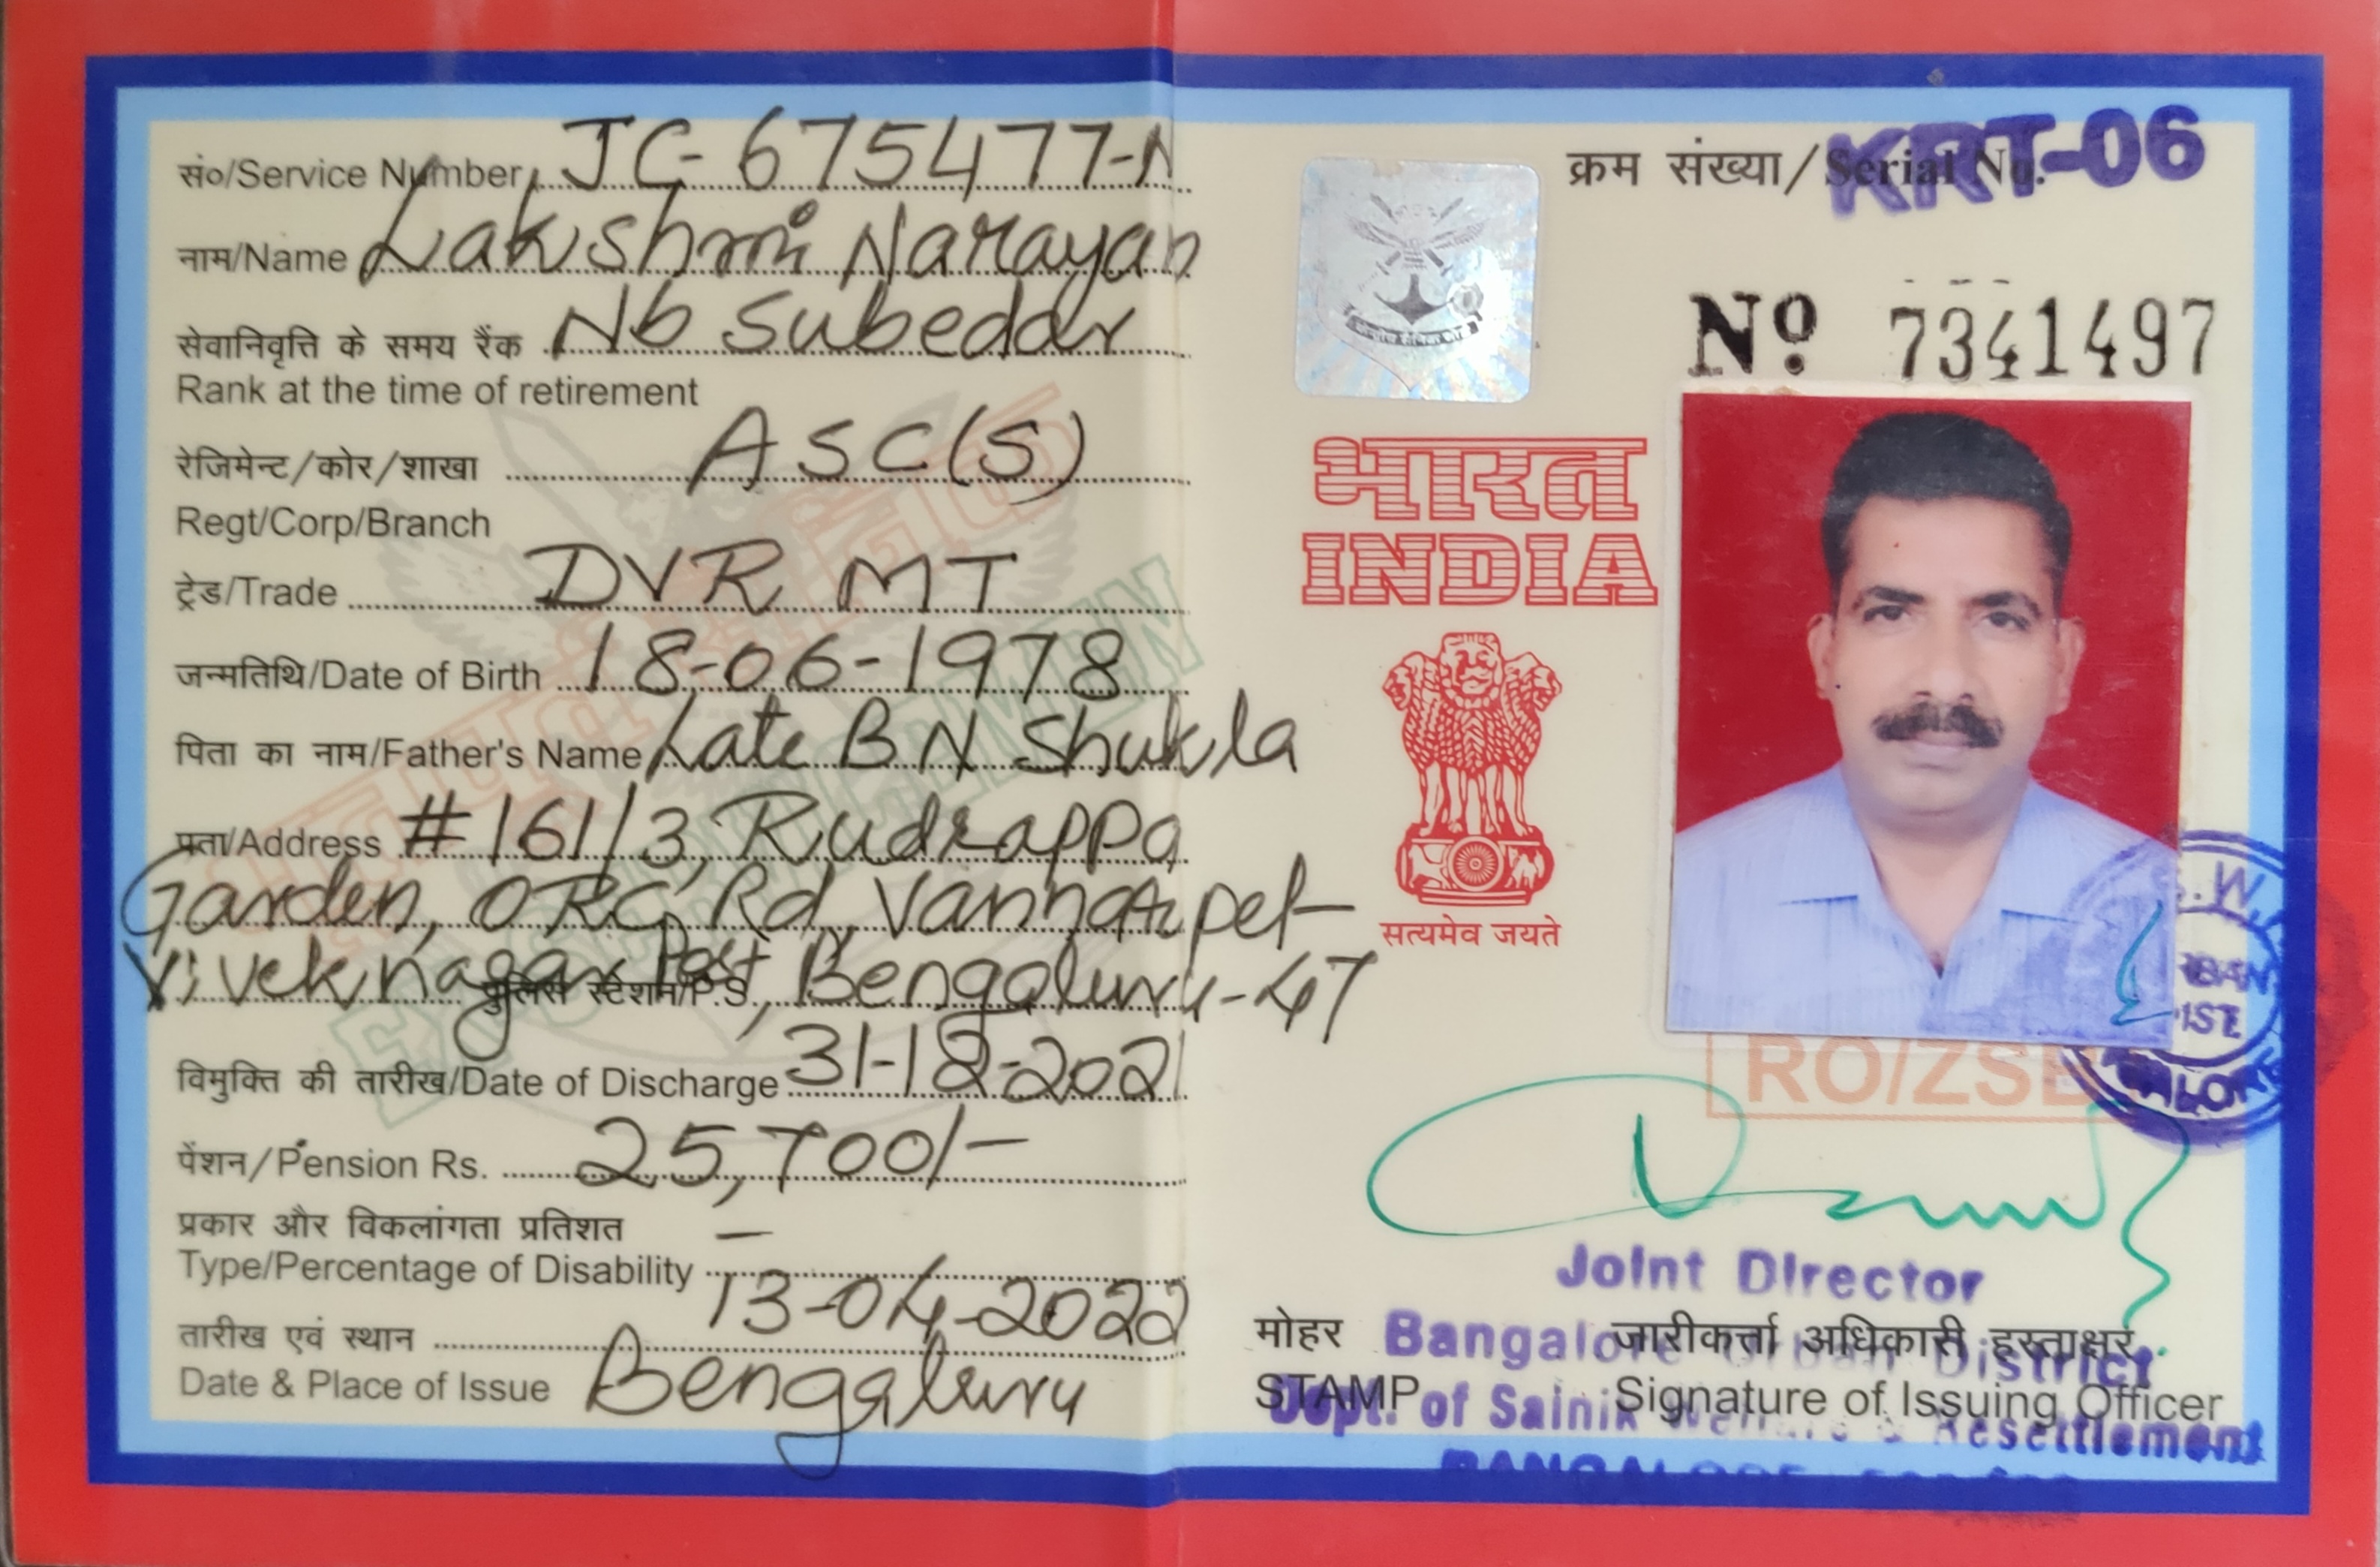 सं०/Service Number JC-675477-N
नाम/Name Lakshmi Narayan
सेवानिवृत्ति के समय रैंक Nb Subedar
Rank at the time of retirement
रेजिमेन्ट/कोर/शाखा ASC(S)
Regt/Corp/Branch
ट्रेड/Trade DVR MT
जन्मतिथि/Date of Birth 18-06-1978
पिता का नाम/Father's Name Late B N Shukla
पता/Address #161/3, Rudrappa
Garden, ORC Rd, Vannarpet
Viveknagar Post, Bengaluru-47
पुलिस स्टेशन/P.S.
विमुक्ति की तारीख/Date of Discharge 31-12-2021
पेंशन/Pension Rs. 25,700/-
प्रकार और विकलांगता प्रतिशत —
Type/Percentage of Disability
तारीख एवं स्थान 13-04-2022
Date & Place of Issue Bengaluru
क्रम संख्या/Serial No. KRT-06
Nº 7341497
भारत
INDIA
सत्यमेव जयते
RO/ZSB
Joint Director
Bangalore Urban District
Dept. of Sainik Welfare & Resettlement
BANGALORE
मोहर
STAMP
जारीकर्त्ता अधिकारी हस्ताक्षर
Signature of Issuing Officer
भूतपूर्व सैनिक
EX-SERVICEMEN